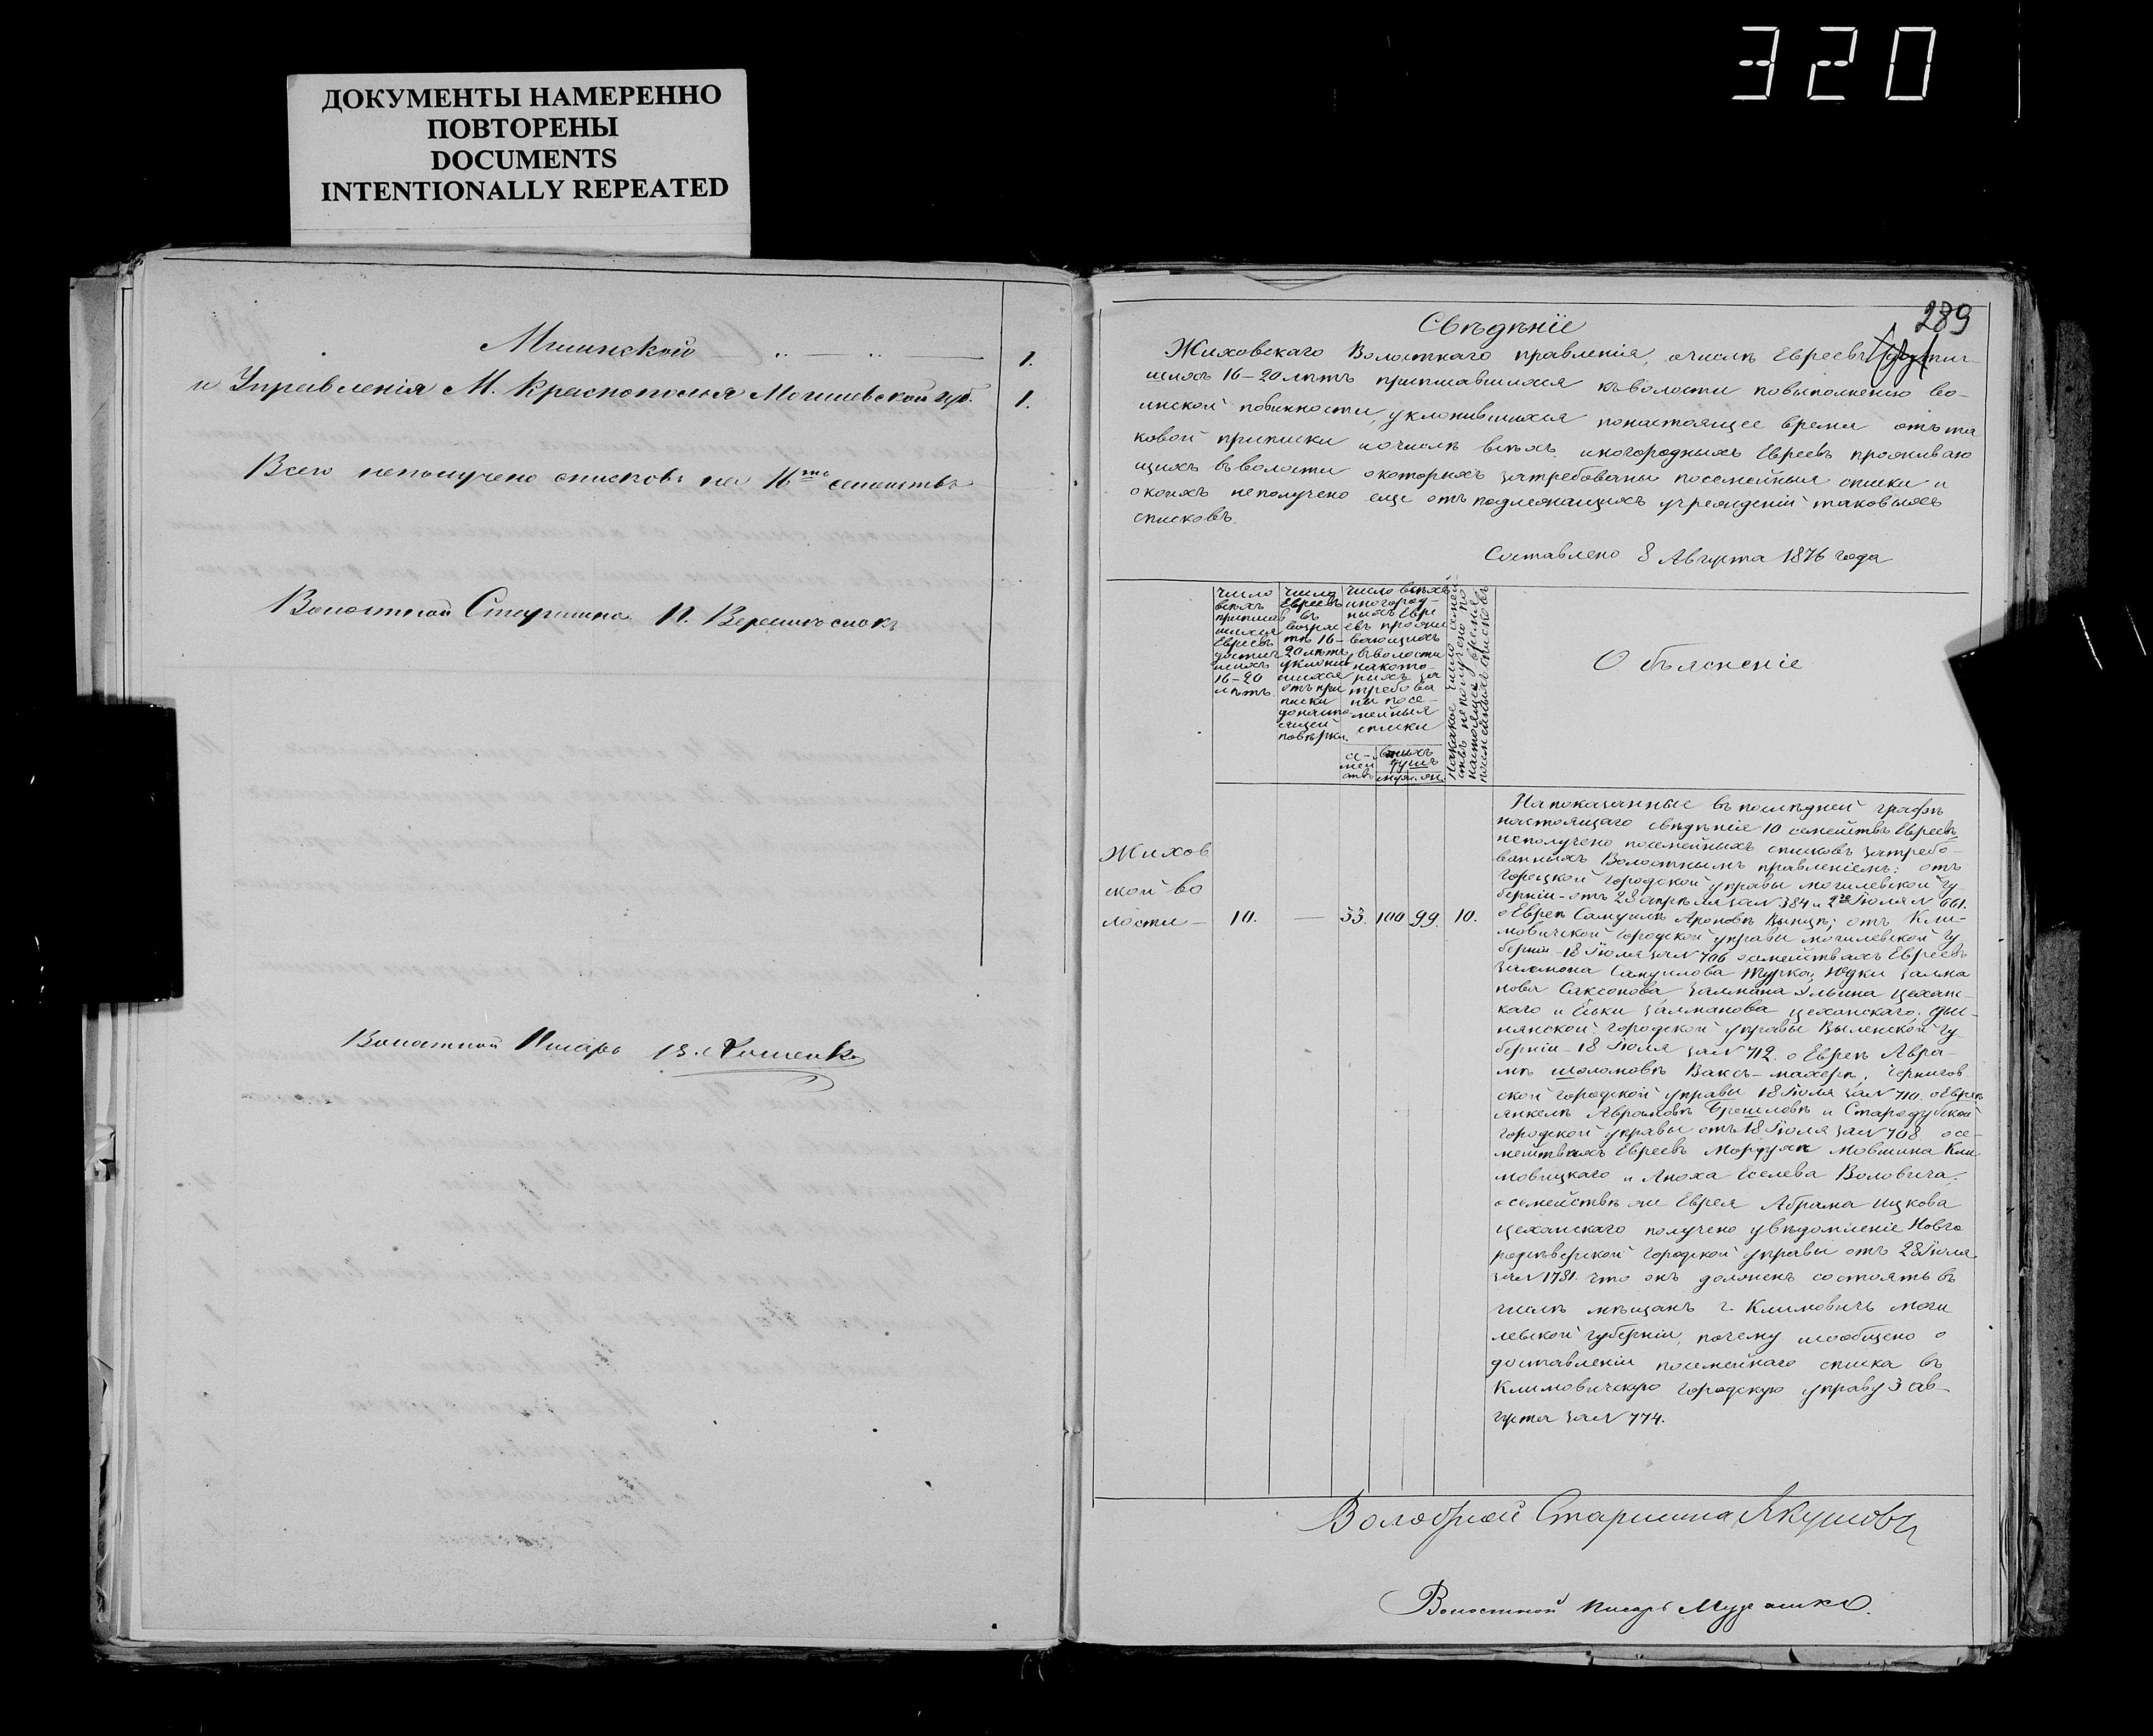 320
ДОКУМЕНТЫ НАМЕРЕННО
ПОВТОРЕНЫ
DOCUMENTS
INTENTIONALLY REPEATED
Мглинской
1.
и Управленія М. Краснополья Могилевской губ.
1.
Всего неполучено списковъ на 16 семействъ
Волостной Старшина П.
Волостной Писарь
289
Свѣдѣніе
Жиховскаго Волостнаго правленія, очислѣ Евреевъ достиг-
шихъ 16-20 лѣтъ приписавшихся къволости повыполненію во-
инской повинности, уклонившихся понастоящее время отъ та
ковой приписки иочислѣ всѣхъ иногородныхъ Евреевъ проживаю
щихъ въволости окоторыхъ затребованы посемейныя списки и
окоихъ неполучено еще отъ подлежащихъ учрежденій таковыхъ
списковъ.
Составлено 8 Августа 1876 года
Число
всѣхъ
приписав
шихся
Евреевъ
достиг
шихъ
16-20
лѣтъ
Число
Евреевъ
въ
возрас
тѣ 16-
20 лѣтъ
уклонив
шихся
отъ при
писки
донасто
ящей
повѣрки.
Число всѣхъ
иногород-
ныхъ Евре
евъ прожи
вающихъ
въволости
накото-
рыхъ за
требова
ны посе-
мейныя
списки
се-
мей
ствъ
внихъ
душъ
муж. жен.
Накакое число семей
ствъ неполучено по
настоящее время
посемейныхъ списковъ
Объясненіе
Жихов
ской во
лости —
10.
—
33.
100
99.
10.
Напоказанные въ послѣдней графѣ
настоящаго свѣдѣнія 10 семействъ Евреевъ
неполучено посемейныхъ списковъ затребо-
ванныхъ Волостнымъ правленіемъ: отъ
Горецкой городской управы могилевской гу-
берніи - отъ 23 апрѣля за N 384 и 2го Іюля N 661.
о Евреѣ Самуилѣ Ароновѣ; отъ Кли-
мовичской городской управы могилевской гу
берніи - 18 Іюля за N 706 осемействахъ Евреевъ
Залмона Самуилова Турка, Залма
нова Саксонова, Залмана Эльина Цехан-
скаго и Еськи Залманова Цеханскаго,
городской управы Виленской гу
берніи - 18 Іюля за N 712. о Евреѣ Авра-
мѣ Шоломовѣ Вакс-махерѣ, Чернигов
ской городской управы 18 Іюля за N 710. о Евреѣ
Янкелѣ Абрамовѣ и Стародубской
городской управы отъ 18 Іюля за N 708 осе-
мействахъ Евреевъ Мордуха Мовшина Кли
мовицкаго и Аноха Еселева Воловича.
осемействѣ же Еврея Абрама Ицкова
Цеханскаго получено увѣдомленіе Новго
родсѣверской городской управы отъ 28 Іюля
за N 1781. что онъ долженъ состоять въ
числѣ мѣщанъ г. Климовичъ моги
левской губерніи, почему исообщено о
доставленіи посемейнаго списка въ
Климовичскую городскую управу 3 ав-
густа за N 774.
Волостной Старшина Якушовъ
Волостной писарь Мурашко.